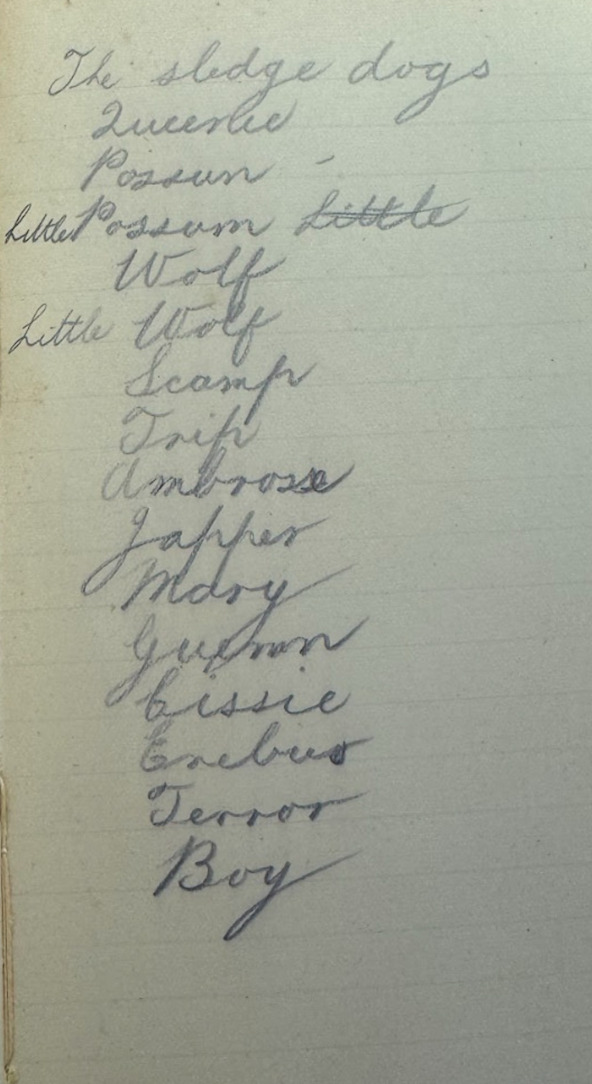 The sledge dogs
Queenie
Possum -
Little Possum Little
Wolf
Little Wolf
Scamp
Trip
Ambrose
Japper
Mary
Cissie
Erebus
Terror
Boy